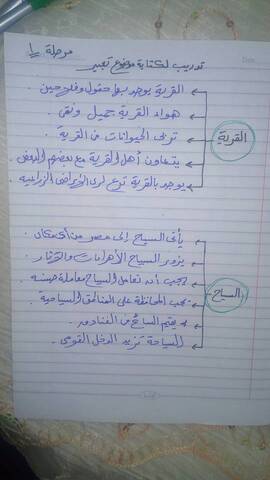 مرحلة 1
تدريب لكتابة موضوع تعبير
القرية
القرية يوجد بها حقول وفلاحين
هواء القرية جميل ونقى
تربى الحيوانات فى القرية
يتعاون أهل القرية مع بعضهم البعض
يوجد بالقرية ترع لرى الأراضى الزراعيه
السياح
يأتى السياح إلى مصر من أى مكان.
يزور السياح الأهرامات والآثار.
يجب أن تعامل السياح معاملة حسنه.
يجب المحافظة على المناطق السياحية.
يقيم السائح فى الفنادق.
السياحة تزيد الدخل القومى.